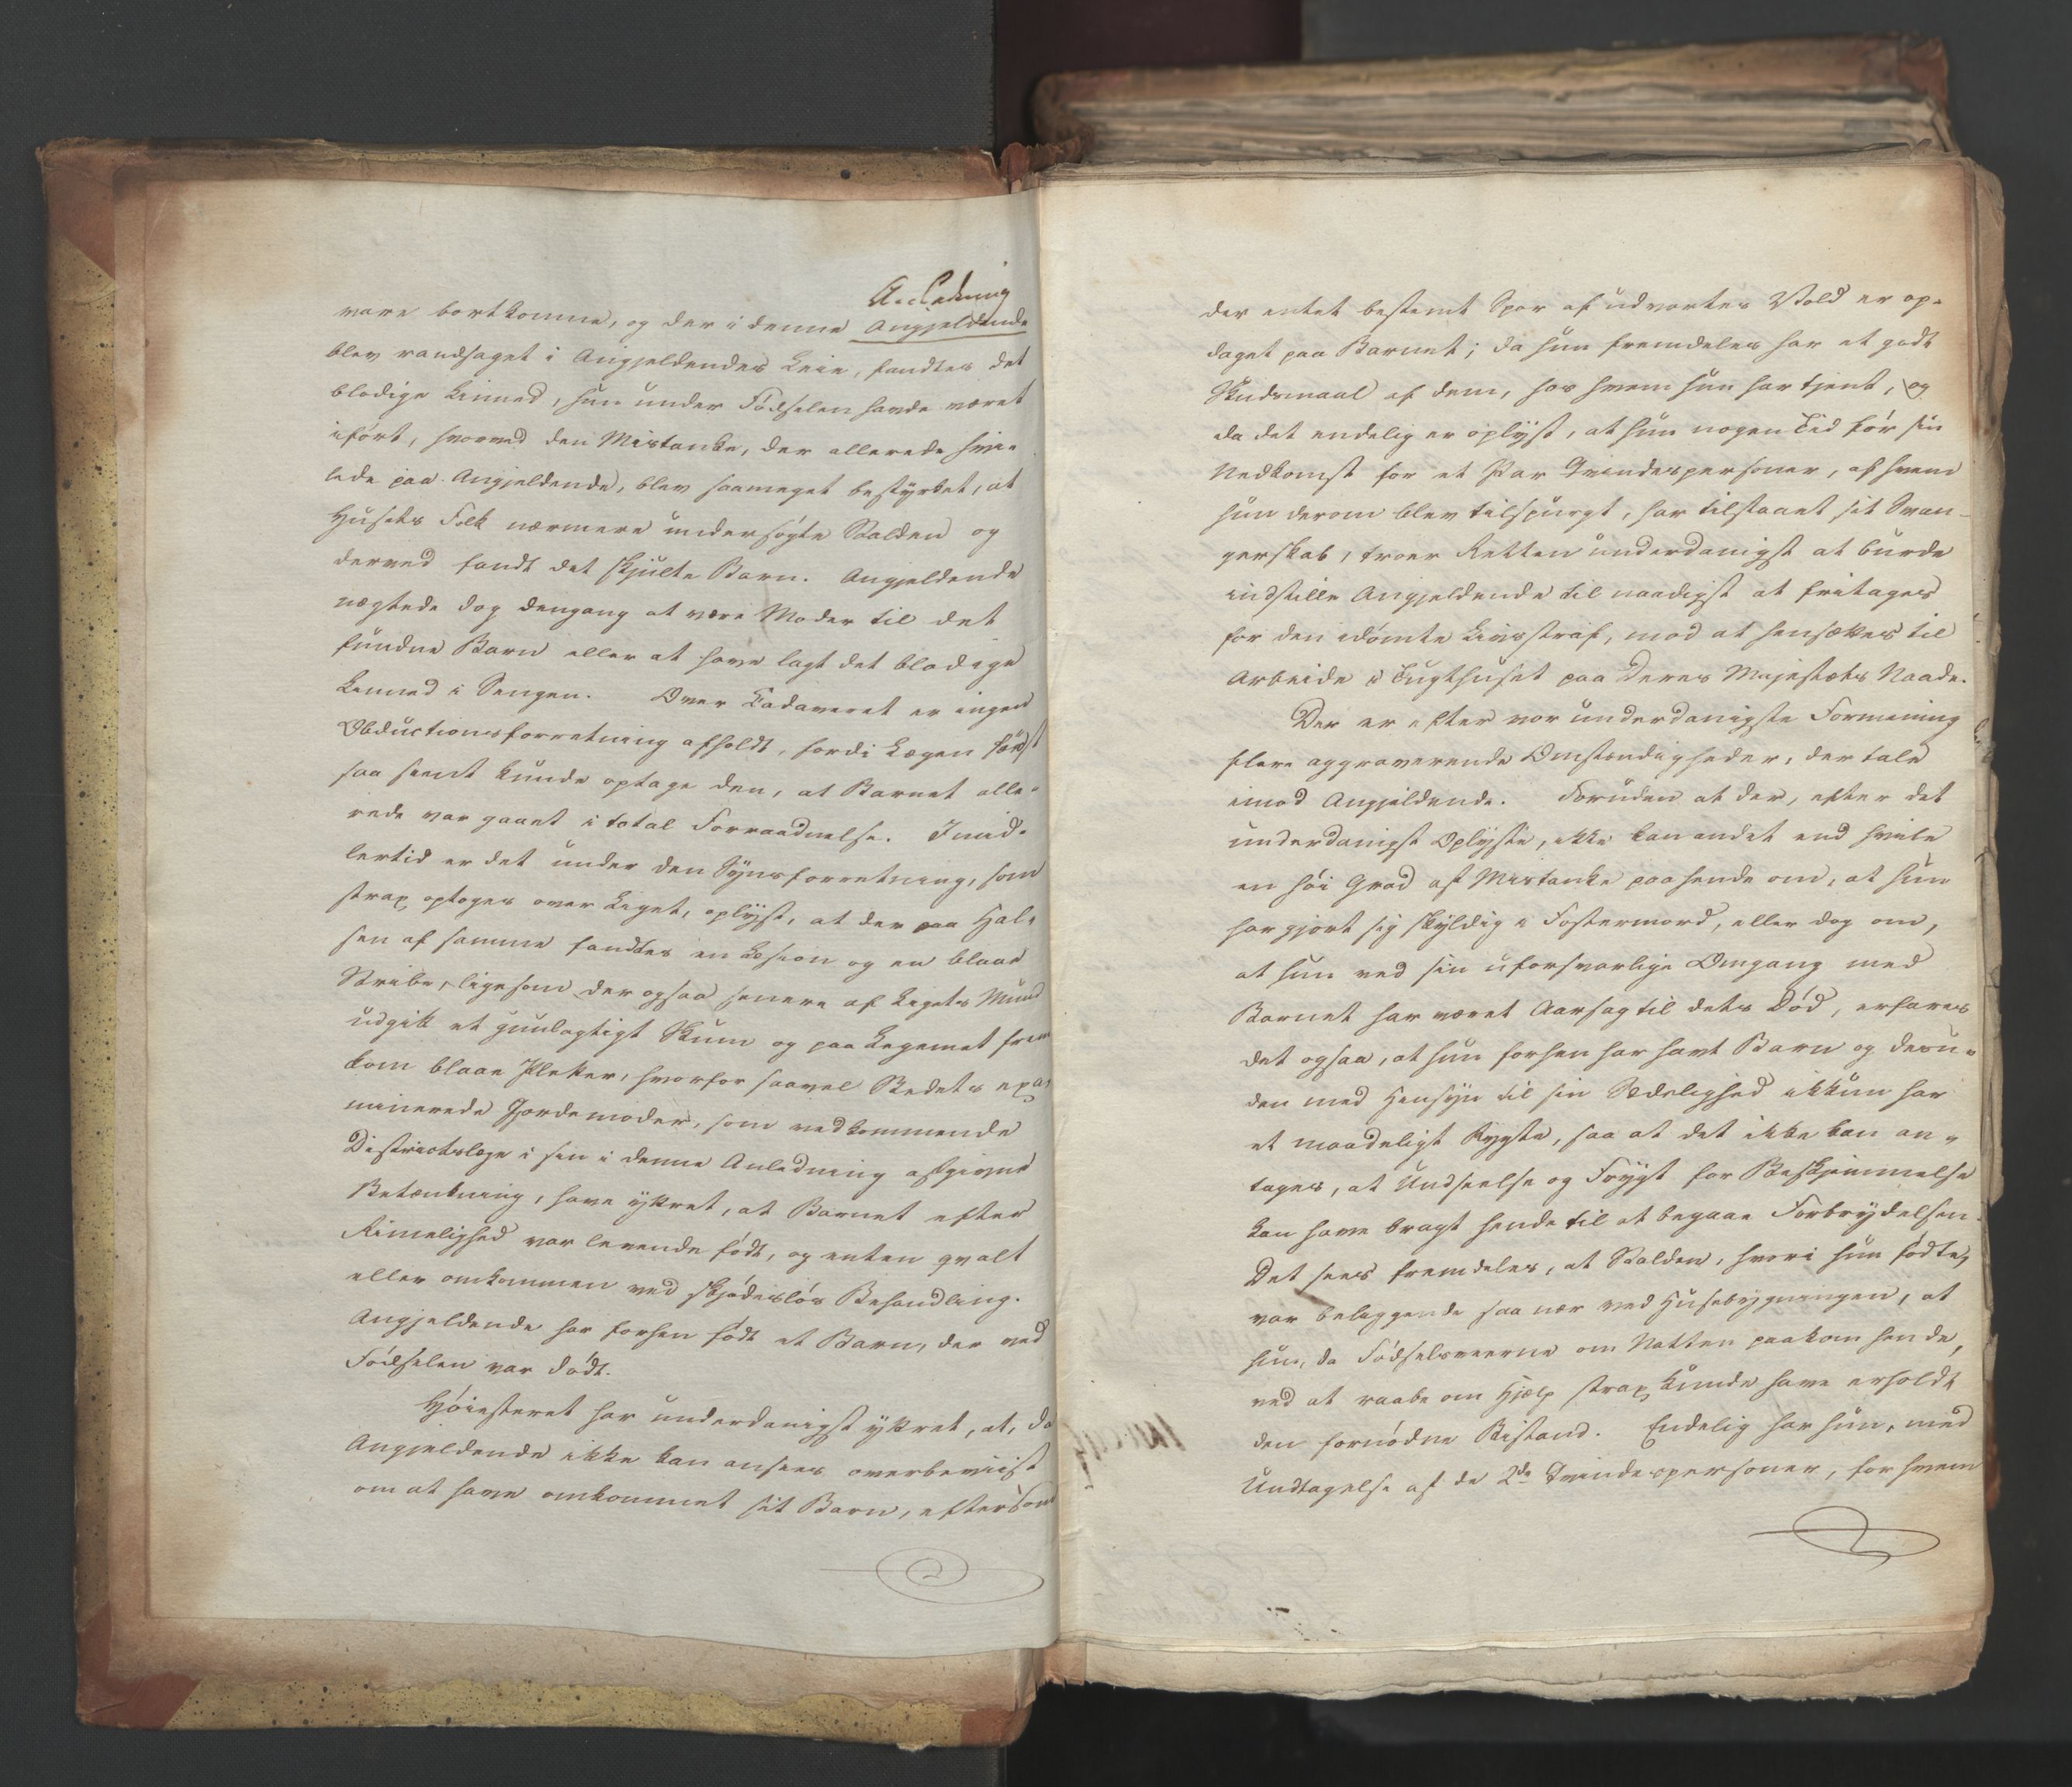 Anledning
vare bortkomne, og der i denne Angjeldende
blev randsaget i Angjeldendes Leie, fandtes det
blodige Linned, hun under Fødselen havde været
iført, hvorved den Mistanke, der allerede hvi-
lede paa Angjeldende, blev saameget bestyrket, at
Husets Folk nærmere undersøgte Stalden og
derved fandt det skjulte Barn. Angjeldende
nægtede dog dengang at være Moder til det
fundne Barn eller at have lagt det blodige
Linned i Sengen. Over Cadaveret er ingen
Obductionsforretning afholdt, fordi Lægen først
saa seent kunde optage den, at Barnet alle-
rede var gaaet i total Forraadnelse. Imid-
lertid er det under den Synsforretning, som
strax optoges over Liget, oplyst, at der paa Hal-
sen af samme fandtes en Læsion og en blaae
Stribe, ligesom der ogsaa senere af Ligets Mund
udgik et guulagtigt Skum og paa Legemet frem
kom blaae Pletter, hvorfor saavel Stedets exa-
minerede Gjordemoder, som vedkommende
Districtslæge i sin i denne Anledning afgivne
Betænkning, have yttret, at Barnet efter
Rimelighed var levende født, og enten qvalt
eller omkommen ved skjødesløs Behandling.
Angjeldende har forhen født et Barn, der ved
Fødselen var dødt.
Høiesteret har underdanigst yttret, at, da
Angjeldende ikke kan ansees overbeviist
om at have omkommet sit Barn, eftersom
der intet bestemt Spor af udvortes Vold er op-
daget paa Barnet; da hun fremdeles har et godt
Skudsmaal af dem, hos hvem hun har tjent, og
da det endelig er oplyst, at hun nogen Tid før sin
Nedkomst for et Par Qvindespersoner, af hvem
hun derom blev tilspurgt, har tilstaaet sit Svan-
gerskab, troer Retten underdanigst at burde
indstille Angjeldende til naadigst at fritages
for den idømte Livsstraf, mod at hensættes til
Arbeide i Tugthuset paa Deres Majestæts Naade.
Der er efter vor underdanigste Formening
flere aggraverende Omstændigheder, der tale
imod Angjeldende. Foruden at der, efter det
underdanigst Oplyste, ikke kan andet end hvile
en høi Grad af Mistanke paa hende om, at hun
har gjort sig skyldig i Fostermord, eller dog om,
at hun ved sin uforsvarlige Omgang med
Barnet har været Aarsag til dets Død, erfares
det ogsaa, at hun forhen har havt Barn og desu-
den med Hensyn til sin Sædelighed ikkun har
et maadeligt Rygte, saa at det ikke kan an-
tages, at Undseelse og Frygt for Beskjæmmelse
kan have bragt hende til at begaae Forbrydelsen.
Det sees fremdeles, at Stalden, hvori hun fødte,
var beliggende saa nær ved Huusbygningen, at
hun, da Fødselsveerne om Natten paakom hende,
ved at raabe om Hjælp strax kunde have erholdt
den fornødne Bistand. Endelig har hun, med
Undtagelse af de 2de Qvindespersoner, for hvem